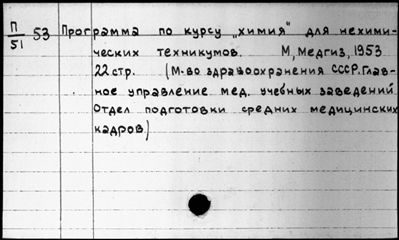 П 53 Программа по курсу „химия" для нехими-
51 ческих техникумов. М, Медгиз, 1953
22 стр. (М-во здравоохранения СССР. Глав-
ное управление мед. учебных заведений
Отдел подготовки средних медицинских
кадров)